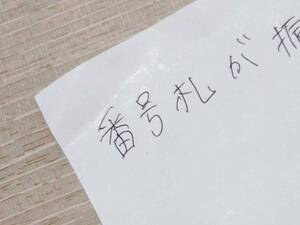 番号札が